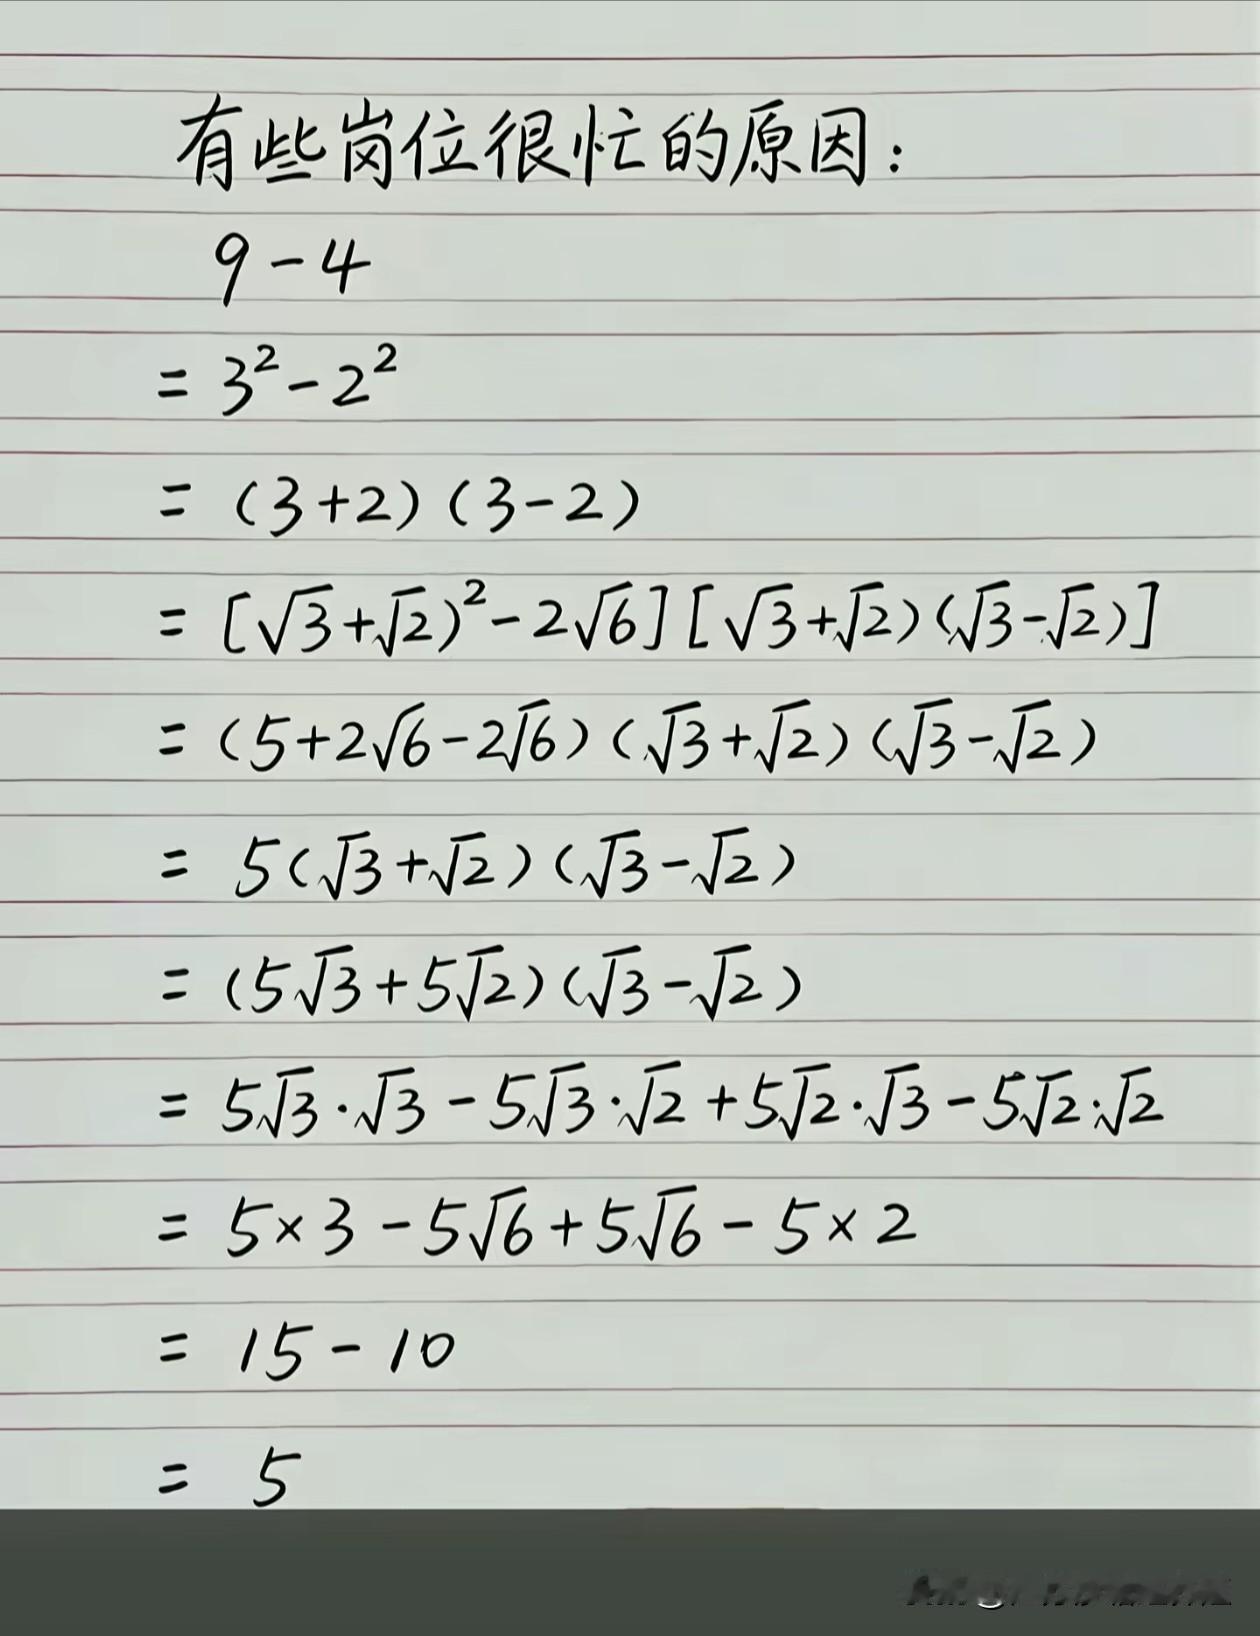 有些岗位很忙的原因:
9-4
= 3²-2²
= (3+2)(3-2)
= [√3+√2)²-2√6][√3+√2)(√3-√2)]
= (5+2√6-2√6)(√3+√2)(√3-√2)
= 5(√3+√2)(√3-√2)
= (5√3+5√2)(√3-√2)
= 5√3·√3-5√3·√2+5√2·√3-5√2·√2
= 5×3-5√6+5√6-5×2
= 15-10
= 5